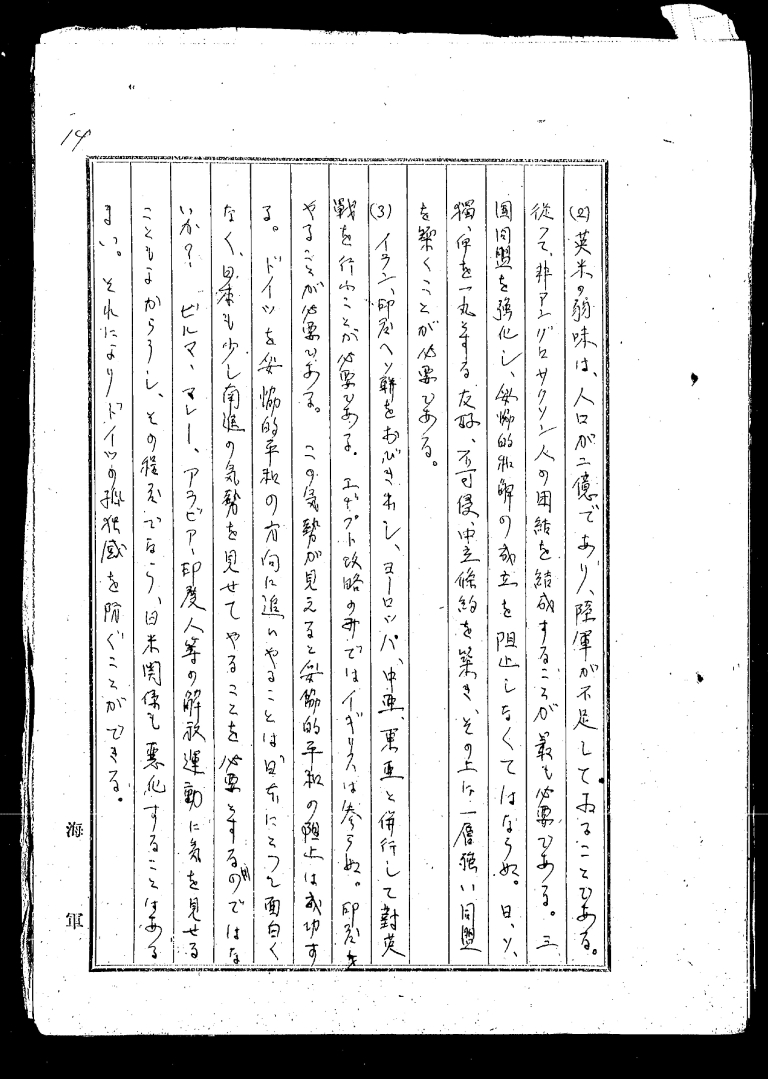 14
(2) 英米の弱味は、人口が二億であり、陸軍が不足してゐることである。
従って、非アングロサクソン人の団結を結成することが最も必要である。三
国同盟を強化し、妥協的和解の成立を阻止しなくてはならぬ。日、ソ、
獨、伊を一丸とする友好、不可侵、中立條約を築き、その上に一層強い同盟
を築くことが必要である。
(3) イラン、印度へソ聯をおびき出し、ヨーロッパ、中亜、東亜と併行して對英
戦を行ふことが必要である。エヂプト攻略のみではイギリスは参らぬ。印度を
やることが必要である。この気勢が見えると妥協的平和の阻止は成功す
る。ドイツを妥協的平和の方向に追いやることは日本にとって面白く
なく、日本も少し南進の気勢を見せてやることを必要とするのではな
いか？ ビルマ、マレー、アラビア、印度人等の解放運動に気を見せる
こともよからうし、その程度でなら、日米関係も悪化することはある
まい。それによりドイツの孤独感を防ぐことができる。
海軍